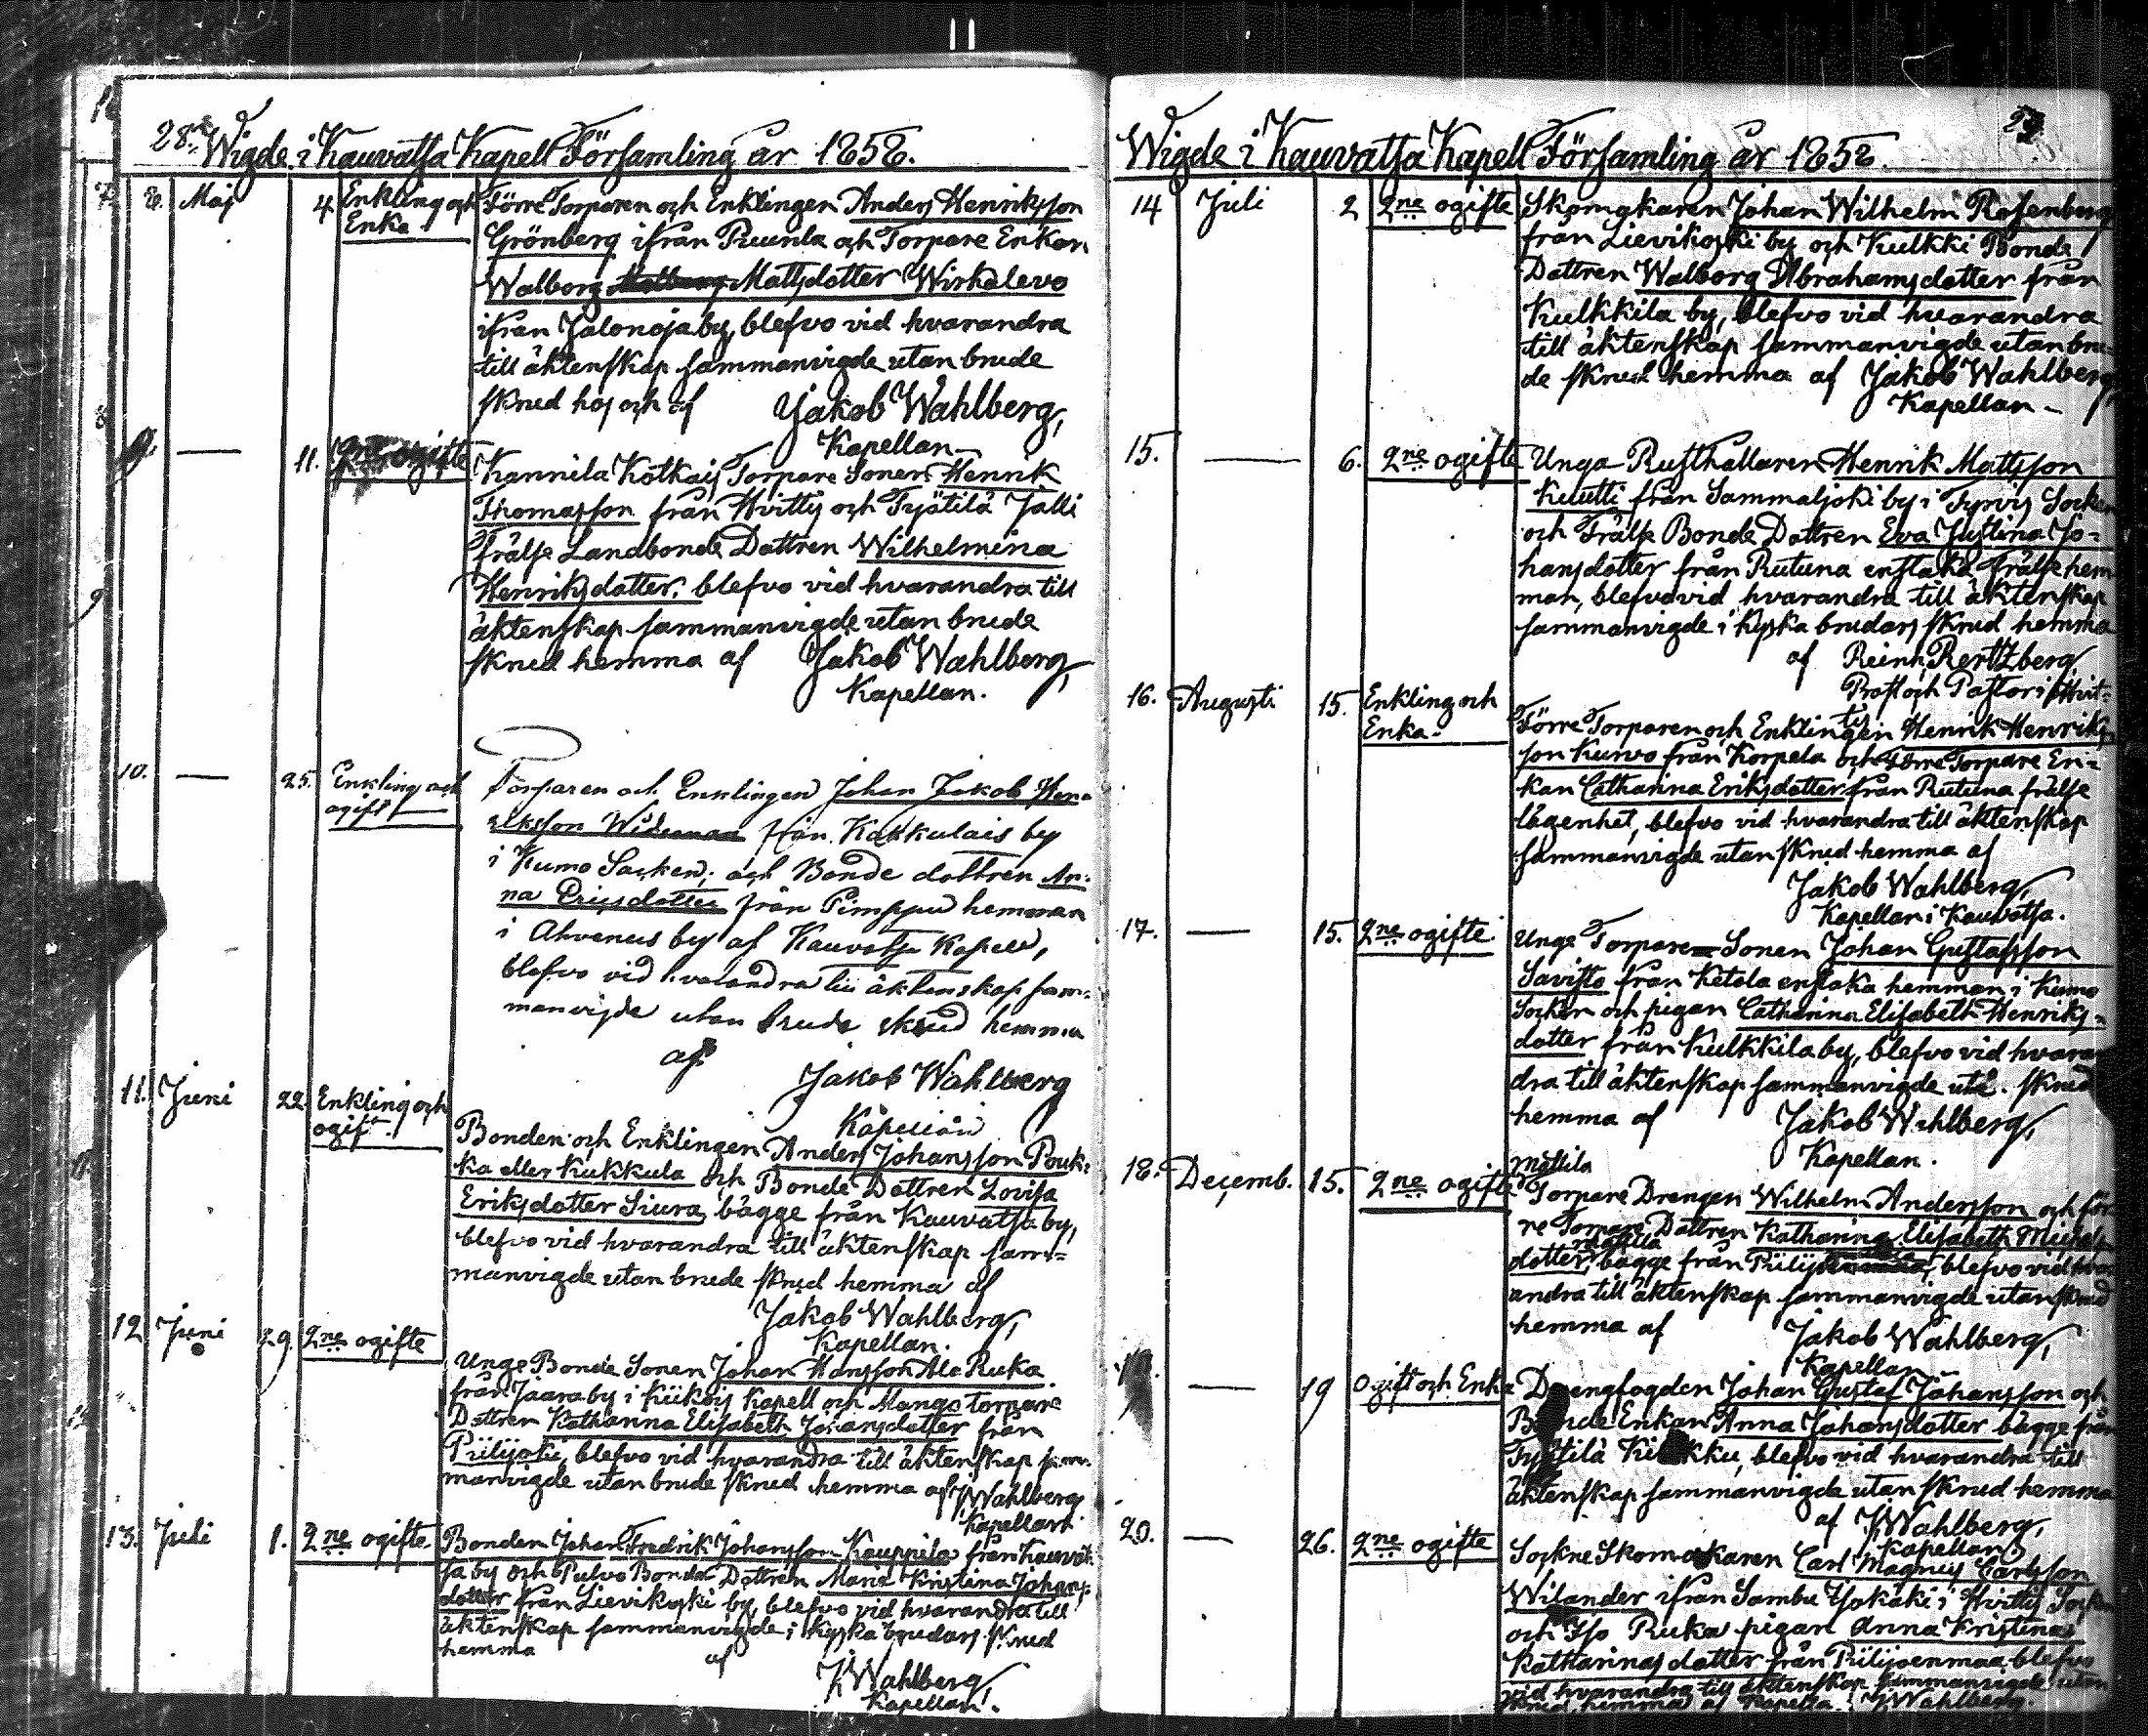 28.
Wigde i Kauvatsa Kapell Församling år 1858.
8. Maj 4. Enkling och Enka
Förre Torparen och Enklingen Anders Henriksson
Grönberg ifrån Puurila och Torpare Enkan
Walborg Mattsdotter Wirkalevo
ifrån Jalonoja by, blefvo vid hvarandra
till äktenskap sammanvigde utan brude
skrud hos och af Jakob Wahlberg,
Kapellan
9. — 11. 2ne ogifte
Kannila Kotkais Torpare Sonen Henrik
Thomasson från Hvittis och Tyätilä Jalli
Frälse Landbonde Dottren Wilhelmina
Henriksdotter, blefvo vid hvarandra till
äktenskap sammanvigde utan brude
skrud hemma af Jakob Wahlberg,
Kapellan.
10. — 25. Enkling och ogift
Torparen och Enklingen Johan Jakob Hen-
riksson Wideman från Kakkulais by
i Kumo Socken, och Bonde dottren An-
na Ericsdotter från Pimppu hemman
i Ahvenus by af Kauvatsa Kapell,
blefvo vid hvarandra till äktenskap sam-
manvigde utan brude skrud hemma
af
Jakob Wahlberg
Kapellan
11. Juni 22. Enkling och ogift.
Bonden och Enklingen Anders Johansson Pouk-
ka eller Kukkula och Bonde Dottren Lovisa
Eriksdotter Siura, bägge från Kauvatsa by,
blefvo vid hvarandra till äktenskap sam-
manvigde utan brude skrud hemma af
Jakob Wahlberg,
Kapellan.
12. Juni 29. 2ne ogifte
Unge Bonde Sonen Johan Hansson Ala Ruka
från Jaara by i Kiikois Kapell och Mango torpare
Dottren Katharina Elisabeth Johansdotter från
Piilijoki, blefvo vid hvarandra till äktenskap sam-
manvigde utan brude skrud hemma af J. Wahlberg
Kapellan.
13. Juli 1. 2ne ogifte
Bonden Johan Fredrik Johansson Kauppila från Kauvat-
sa by och Pulvo Bonde Dottren Maria Kristina Johans-
dotter från Lievikoski by, blefvo vid hvarandra till
äktenskap sammanvigde i kyska brudars skrud
hemma af
J. Wahlberg,
Kapellan.
29.
Wigde i Kauvatsa Kapell Församling år 1858.
14 Juli 2 2ne ogifte
Skomakaren Johan Wilhelm Rosenberg
från Lievikoski by och Kulkki Bonde
Dottren Walborg Abrahamsdotter från
Kulkkila by, blefvo vid hvarandra
till äktenskap sammanvigde utan bru-
de skrud hemma af Jakob Wahlberg,
Kapellan
15. — 6. 2ne ogifte
Unga Rusthållaren Henrik Mattsson
Kuutti från Sammaljoki by i Tyrvis Socken
och Frälse Bonde Dottren Eva Justina Jo-
hansdotter från Rutuna enstaka Frälse hem-
man, blefvo vid hvarandra till äktenskap
sammanvigde i kyska brudars skrud hemma
af Reinh. Rertzberg
Prost och Pastor i Hvit-
tis
16. Augusti 15. Enkling och Enka
Förre Torparen och Enklingen Henrik Henriks-
son Kurvo från Korpela och förre Torpare En-
kan Catharina Eriksdotter från Rutuna frälse
lägenhet, blefvo vid hvarandra till äktenskap
sammanvigde utan skrud hemma af
Jakob Wahlberg,
Kapellan i Kauvatsa.
17. — 15. 2ne ogifte.
Unge Torpare Sonen Johan Gustafsson
Savisto från Ketola enstaka hemman i Kumo
Socken och pigan Catharina Elisabeth Henriks-
dotter från Kulkkila by, blefvo vid hvaran-
dra till äktenskap sammanvigde uta. skrud
hemma af Jakob Wahlberg,
Kapellan.
18. Decemb. 15. 2ne ogifte
Mattila
Torpare Drengen Wilhelm Andersson och för-
re Torpare Dottren Katharina Elisabeth Michels-
dotter, bägge från blefvo vid hvar-
andra till äktenskap sammanvigde utan skrud
hemma af Jakob Wahlberg,
Kapellan
— 19 Ogift och Enka
Drengfogden Johan Gustaf Johansson och
Bonde Enkan Anna Johansdotter bägge från
blefvo vid hvarandra till
äktenskap sammanvigde utan skrud hemma
af J. Wahlberg,
Kapellan
20. — 26. 2ne ogifte
Sockne Skomakaren Carl Magnus Carlsson
Wilander ifrån Sambu Yskäki i Hvittis Socken
och Iso Ruka pigan Anna Kristina
Katharinas dotter från Piilijoenmaa, blefvo
vid hvarandra till äktenskap sammanvigde utan
skrud hemma af Kapella. J. Wahlberg.